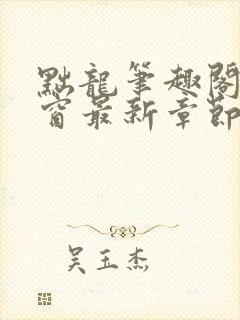 點龍筆趣閣
窗最新章節
吴玉杰